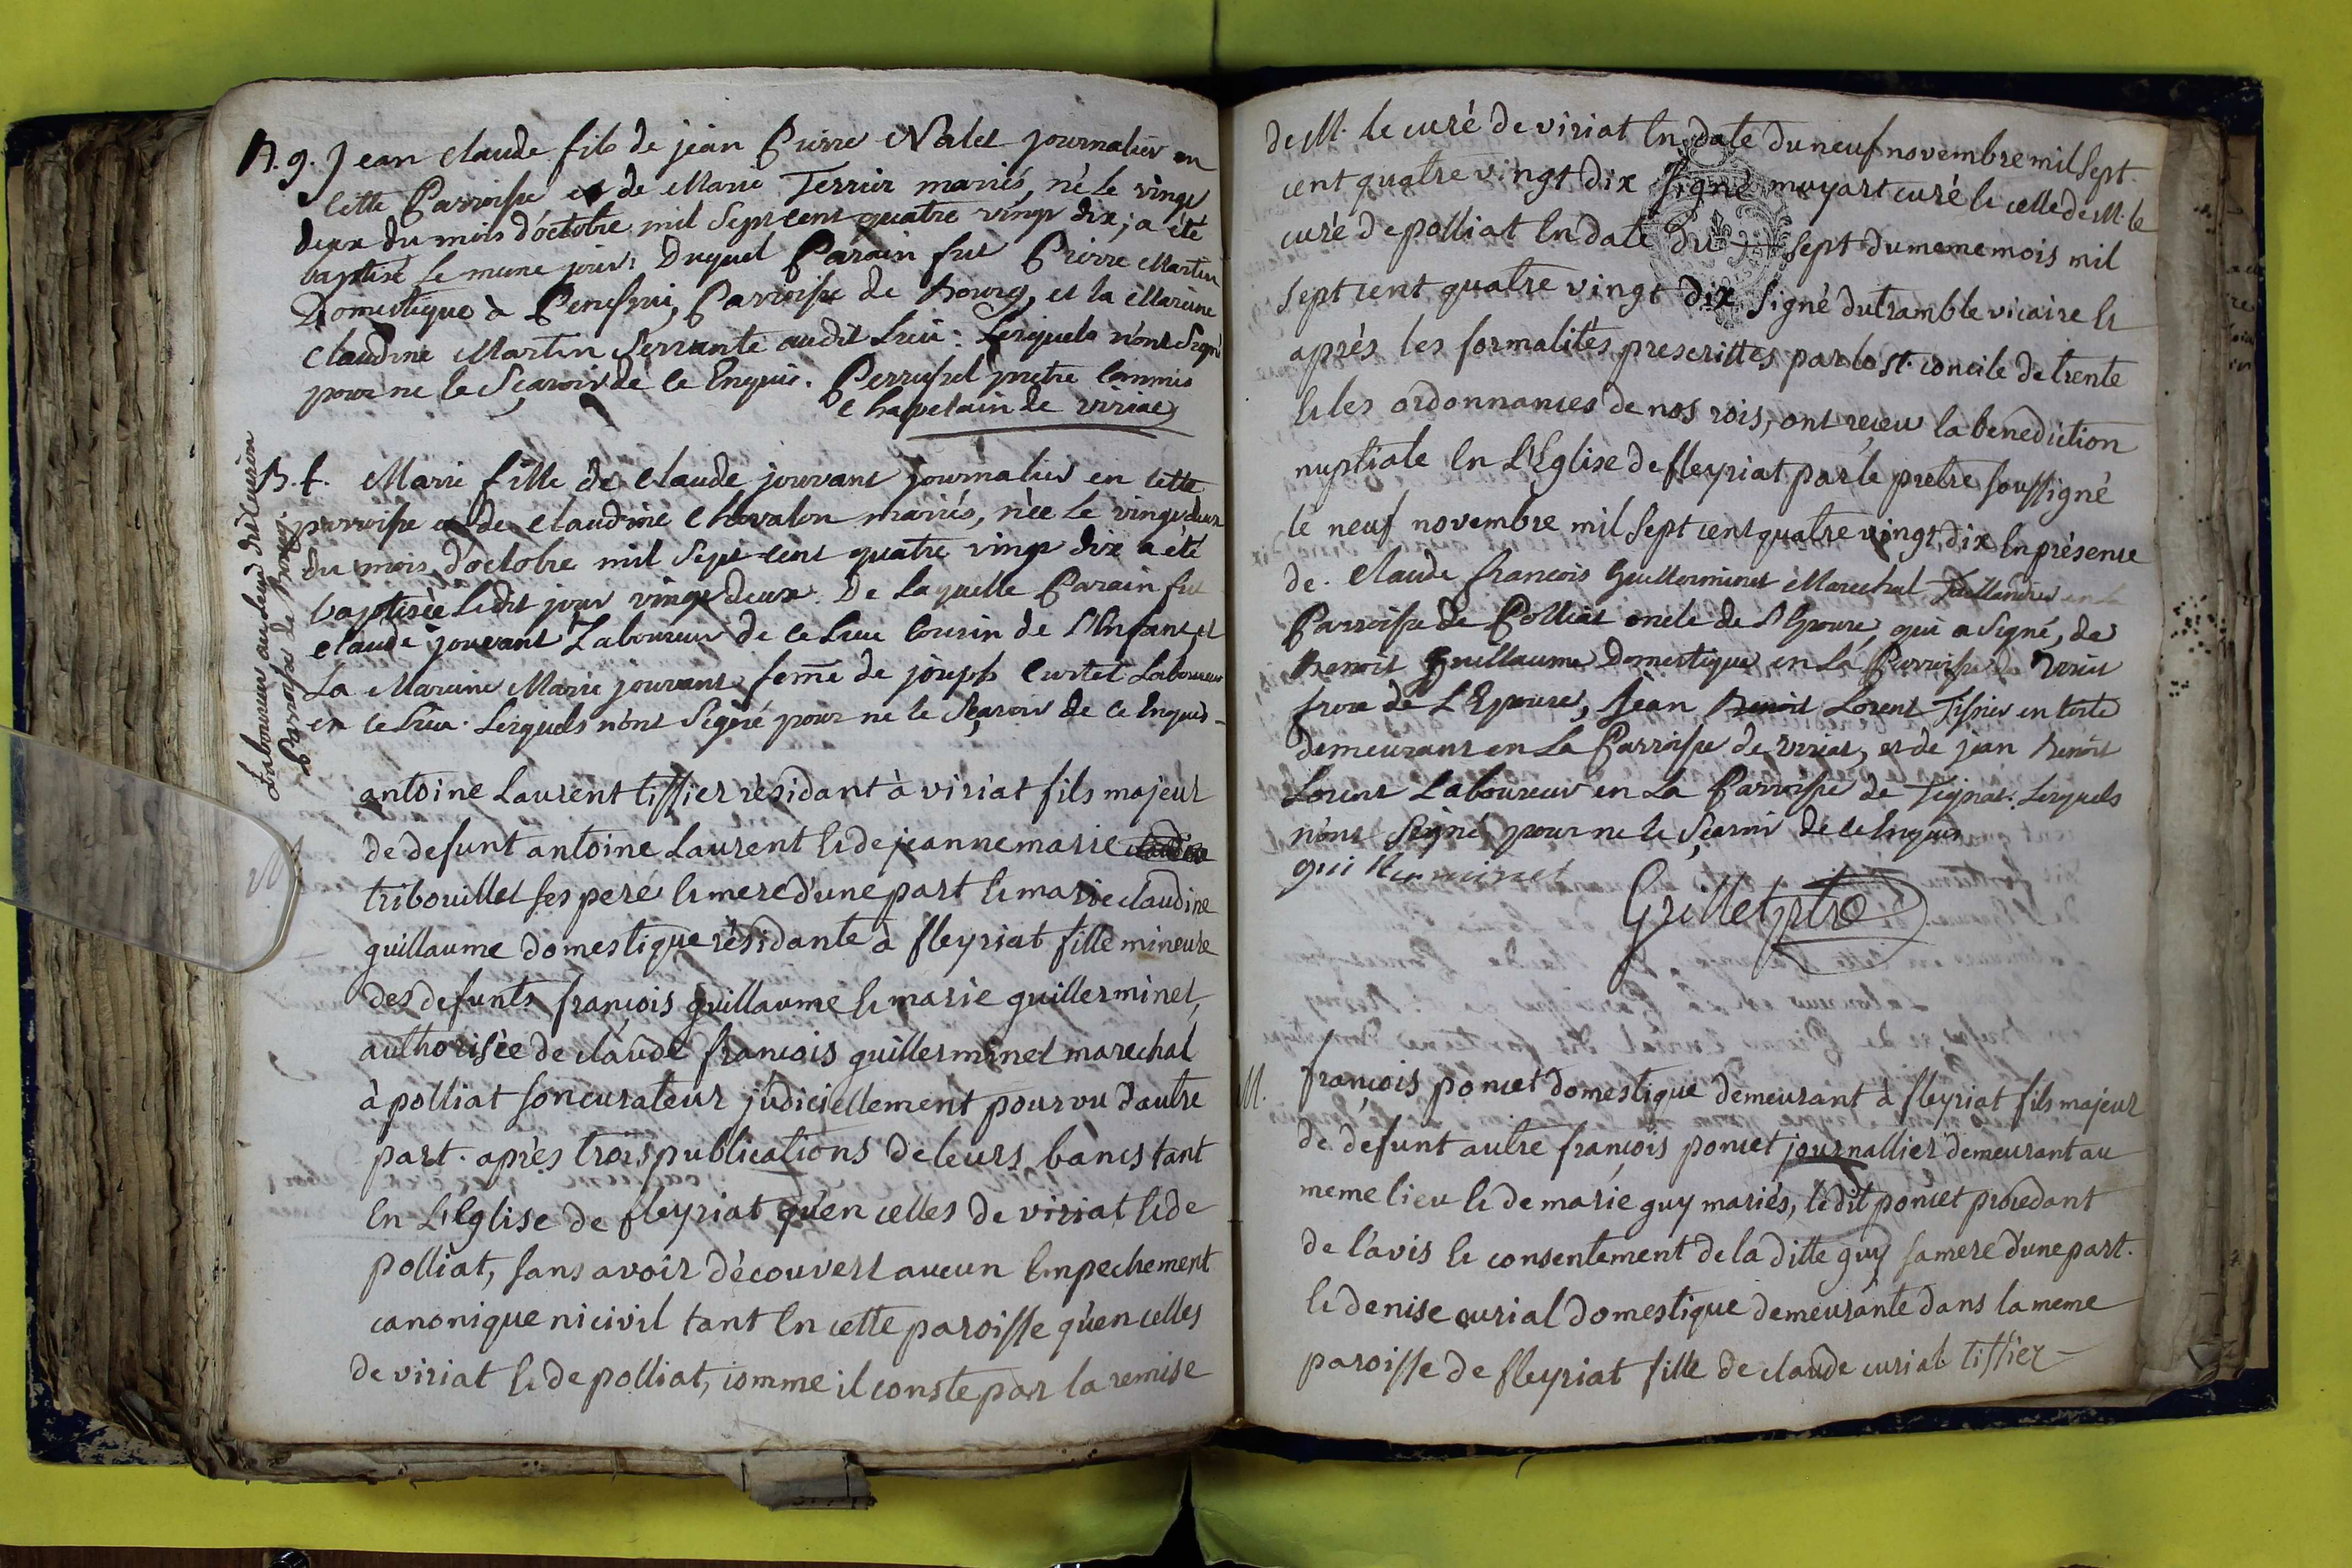 B. g. Jean claude fils de jean Pierre Nalet journalier en
cette Parroisse et de Marie Terrier mariés, né le vingt
deux du mois d'octobre mil sept cent quatre vingt dix; a été
baptisé le meme jour: Duquel Parain fut Pierre Martin
Domestique à Penessui, Parroisse de Bourg, et la Maraine
claudine Martin servante audit lieu: Lesquels n'ont signé
pour ne le sçavoir de ce Enquis. Perrussel pretre commis
chapelain de viriat
B. f. Marie fille de claude jouvant journalier en cette
parroisse et de claudine chevalon mariés, née le vingt deux
du mois d'octobre mil sept cent quatre vingt dix a été
baptisée ledit jour vingt deux. De laquelle Parain fut
claude jouvant Laboureur de ce lieu cousin de l'Enfant, et
La Maraine Marie jouvant feme de joseph curtet Laboureur
en ce lieu. Lesquels n'ont signé pour ne le sçavoir de ce Enquis -
Laboureur au lieu dit
Parroisse de Bourg.
M.
antoine Laurent tissier résidant à viriat fils majeur
de defunt antoine Laurent & de jeanne marie
tribouillet ses pere & mere d'une part & marie claudine
guillaume domestique résidante à fleyriat fille mineure
des defunts françois guillaume & marie guillerminet,
authorisée de claude francois guillerminet marechal
à polliat son curateur judiciellement pourvu d'autre
part. après trois publications de leurs bancs tant
En L'Eglise de fleyriat qu'en celles de viriat & de
polliat, sans avoir découvert aucun Empechement
canonique ni civil tant En cette paroisse qu'en celles
de viriat & de polliat, comme il conste par la remise
de M. le curé de viriat En date du neuf novembre mil sept
cent quatre vingt dix signé muyart curé & celle de M. le
curé de polliat En date du sept du meme mois mil
sept cent quatre vingt dix signé dutramble vicaire &
après les formalités prescrittes par le st. concile de trente
& les ordonnances de nos rois, ont reçeu la benediction
nuptiale En L'Eglise de fleyriat par le pretre soussigné
le neuf novembre mil sept cent quatre vingt dix En présence
de. Claude francois Guillerminet Marechal Taillandier en la
Parroisse de Polliat oncle de l'Epouse, qui a signé, de
Benoit Guillaume Domestique en La Parroisse de Viriat
frere de L'Epouse, jean Benoit Lorent Tissier en toile
demeurant en La Parroisse de viriat, et de jean Benoit
Lorent Laboureur en La Parroisse de Lesquels
n'ont signé pour ne le sçavoir de ce Enquis
guillerminet
Grillet ptre
M. françois poncet domestique demeurant à fleyriat fils majeur
de defunt autre françois poncet journallier demeurant au
meme lieu & de marie guy mariés, ledit poncet procedant
de l'avis & consentement de la ditte guy sa mere d'une part.
& denise curial domestique demeurante dans la meme
paroisse de fleyriat fille de claude curial tissier -